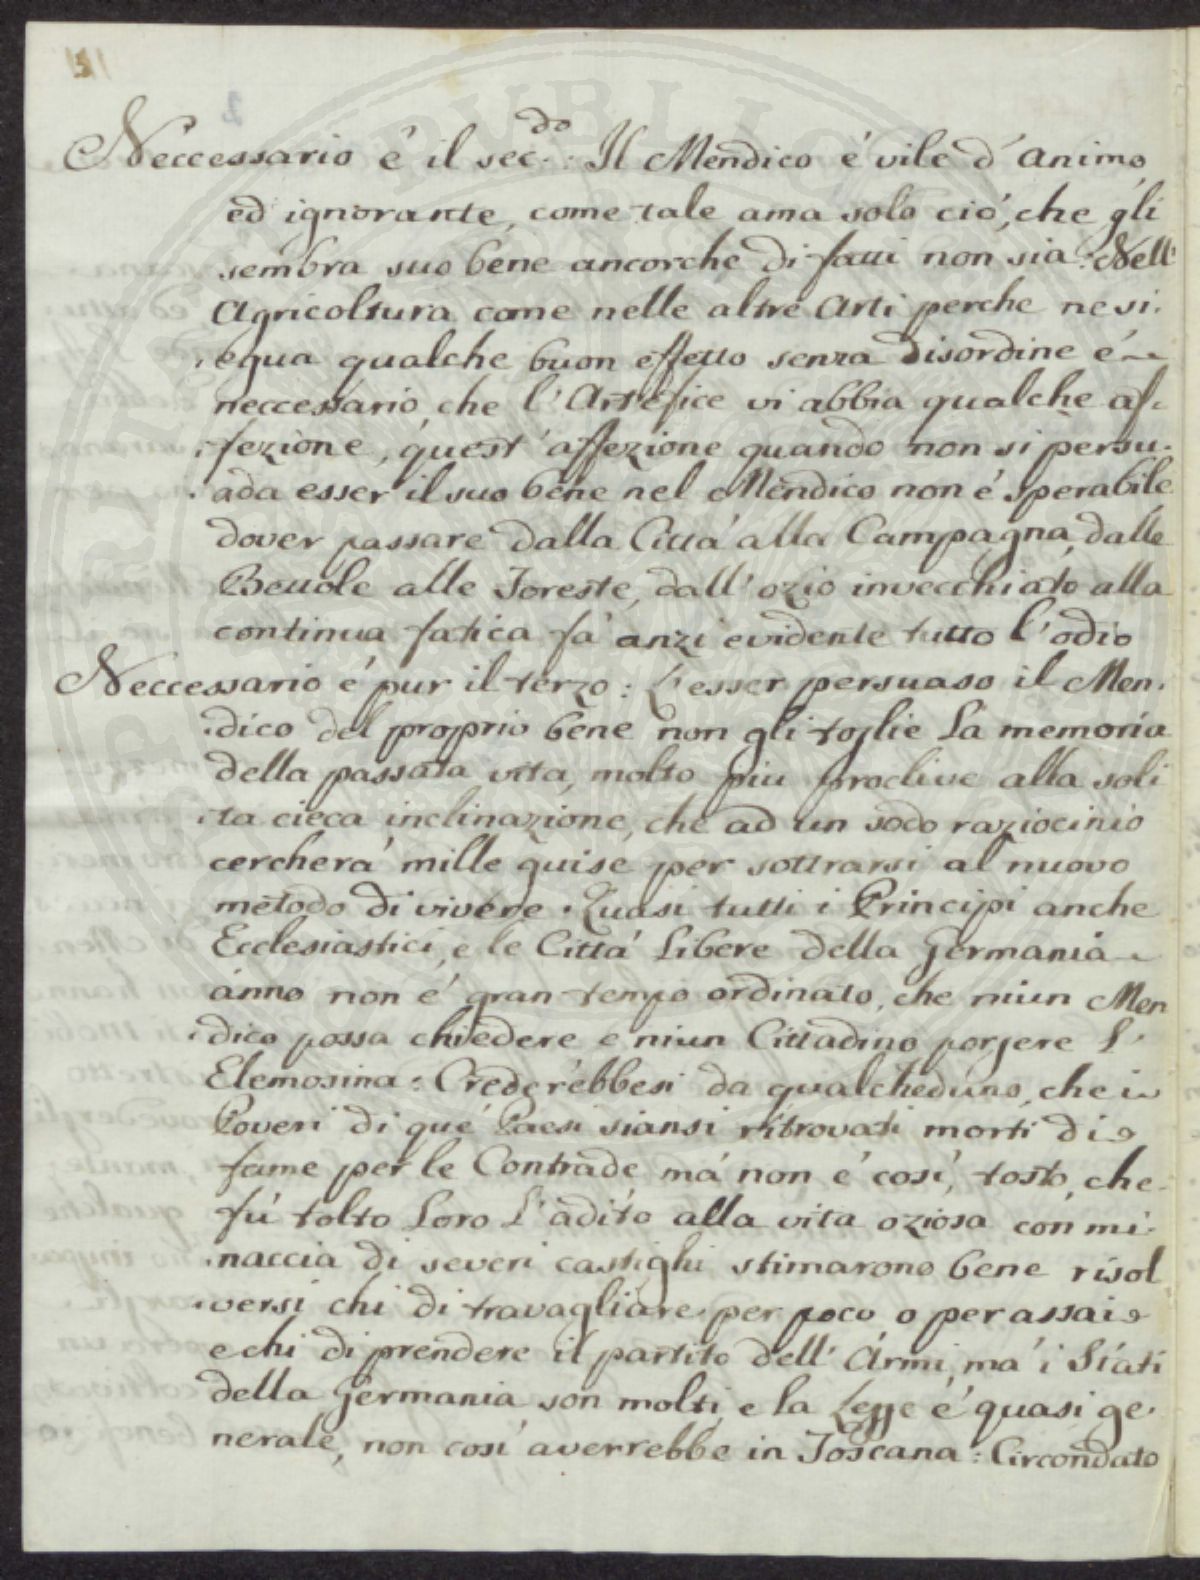 Neccessario é il sec.do: Il Mendico é vile d'animo
ed ignorante, come tale ama solo ció, che gli
sembra suo bene ancorche di fatti non sia: Nell'
Agricoltura come nelle altre Arti perche ne si.
.egua qualche buon effetto senza disordine é
neccessario, che l'Artefice vi abbia qualche af.
.fezione, quest'affezione quando non si persu.
.ada esser il suo bene nel Mendico non é sperabile
dover passare dalla Cittá alla Campagna, dalle
Bettole alle Foreste, dall'ozio invecchiato alla
continua fatica fá anzi evidente tutto l'odio
Neccessario é pur il terzo: L'esser persuaso il Men.
.dico del proprio bene non gli toglie La memoria
della passata vita, molto piu proclive alla soli
.ta cieca inclinazione, che ad un sodo raziocinio
cercherá mille guise per sottrarsi al nuovo
metodo di vivere. Quasi tutti i Principi anche
Ecclesiastici, e le Cittá Libere della Germania
ánno non é gran tempo ordinato, che niun Men
.dico possa chiedere e niun Cittadino porgere L'
Elemosina: Crederébbesi da qualcheduno, che i
Poveri di qué Paesi siansi ritrovati morti di
fame per le Contrade, má non é cosí, tosto, che
fú tolto Loro L'adito alla vita oziosa con mi.
.naccia di severi castighi stimarono bene risol
.versi chi di travagliare per poco o per assai
e chi di prendere il partito dell'Armi, má i Stati
della Germania son molti, e la Legge é quasi ge.
nerale, non cosí averrebbe in Toscana: Circondato